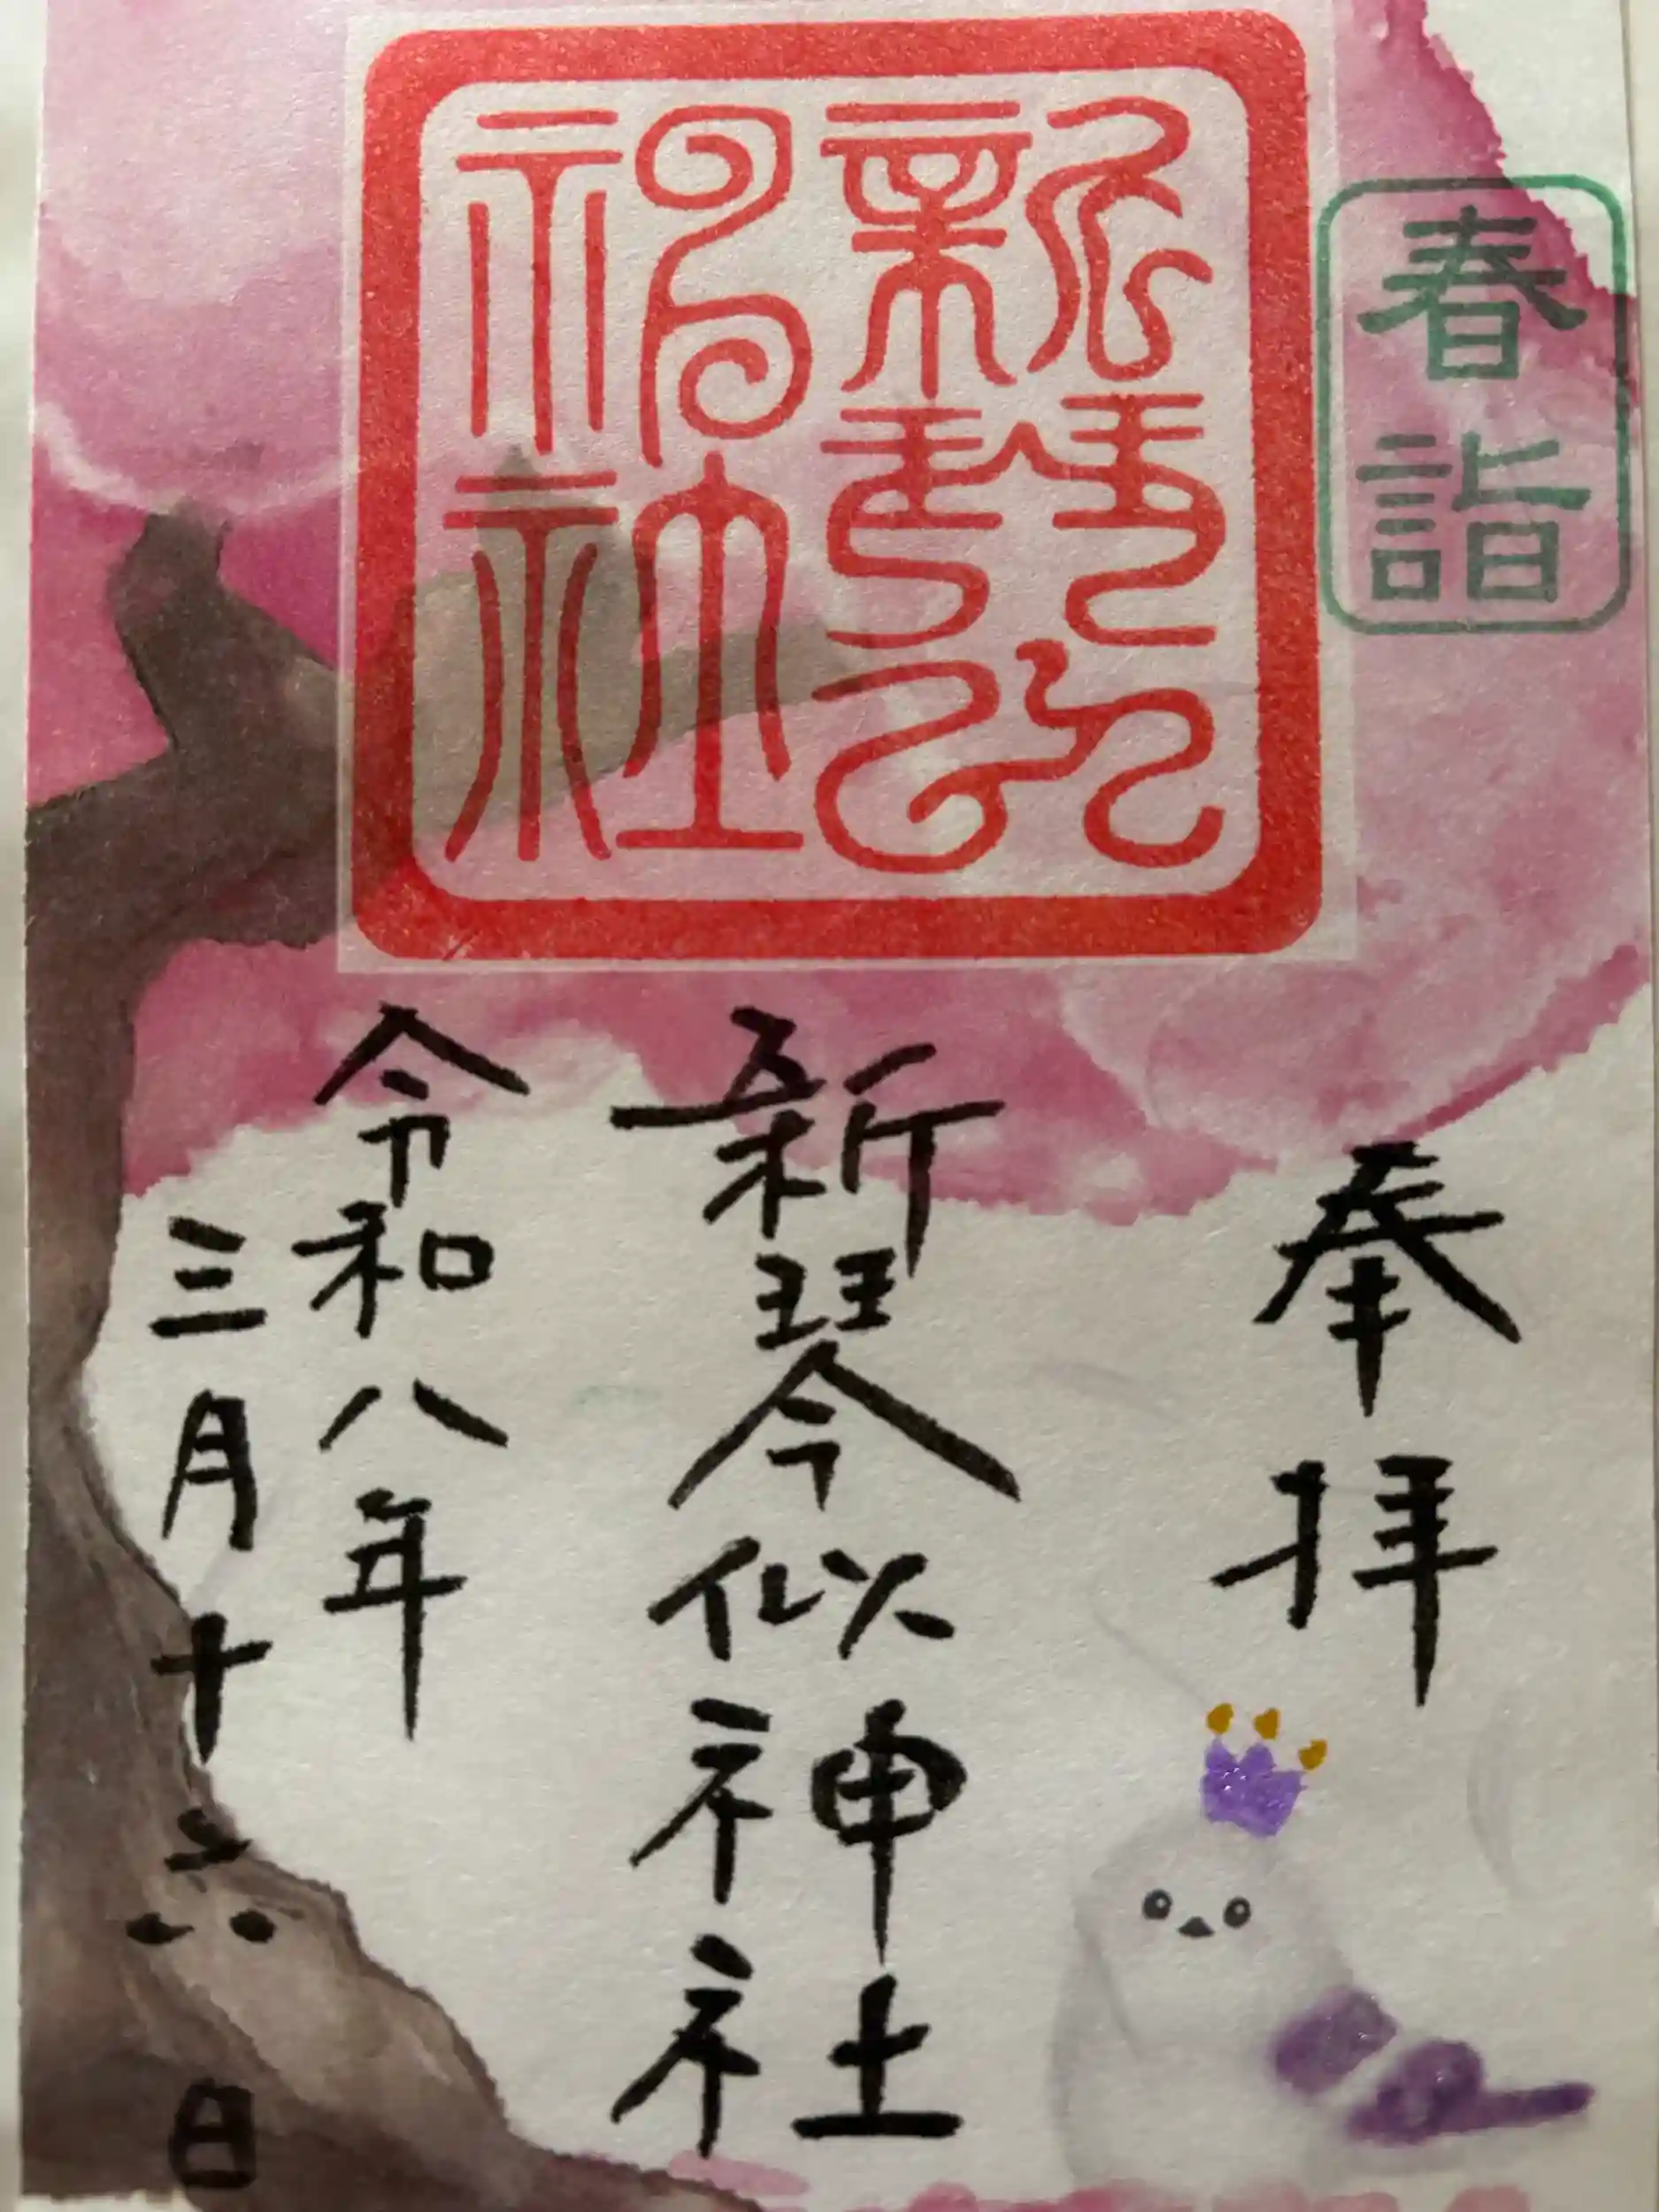 春詣
新琴似
神社
奉拝
新琴似神社
令和八年
三月十六日